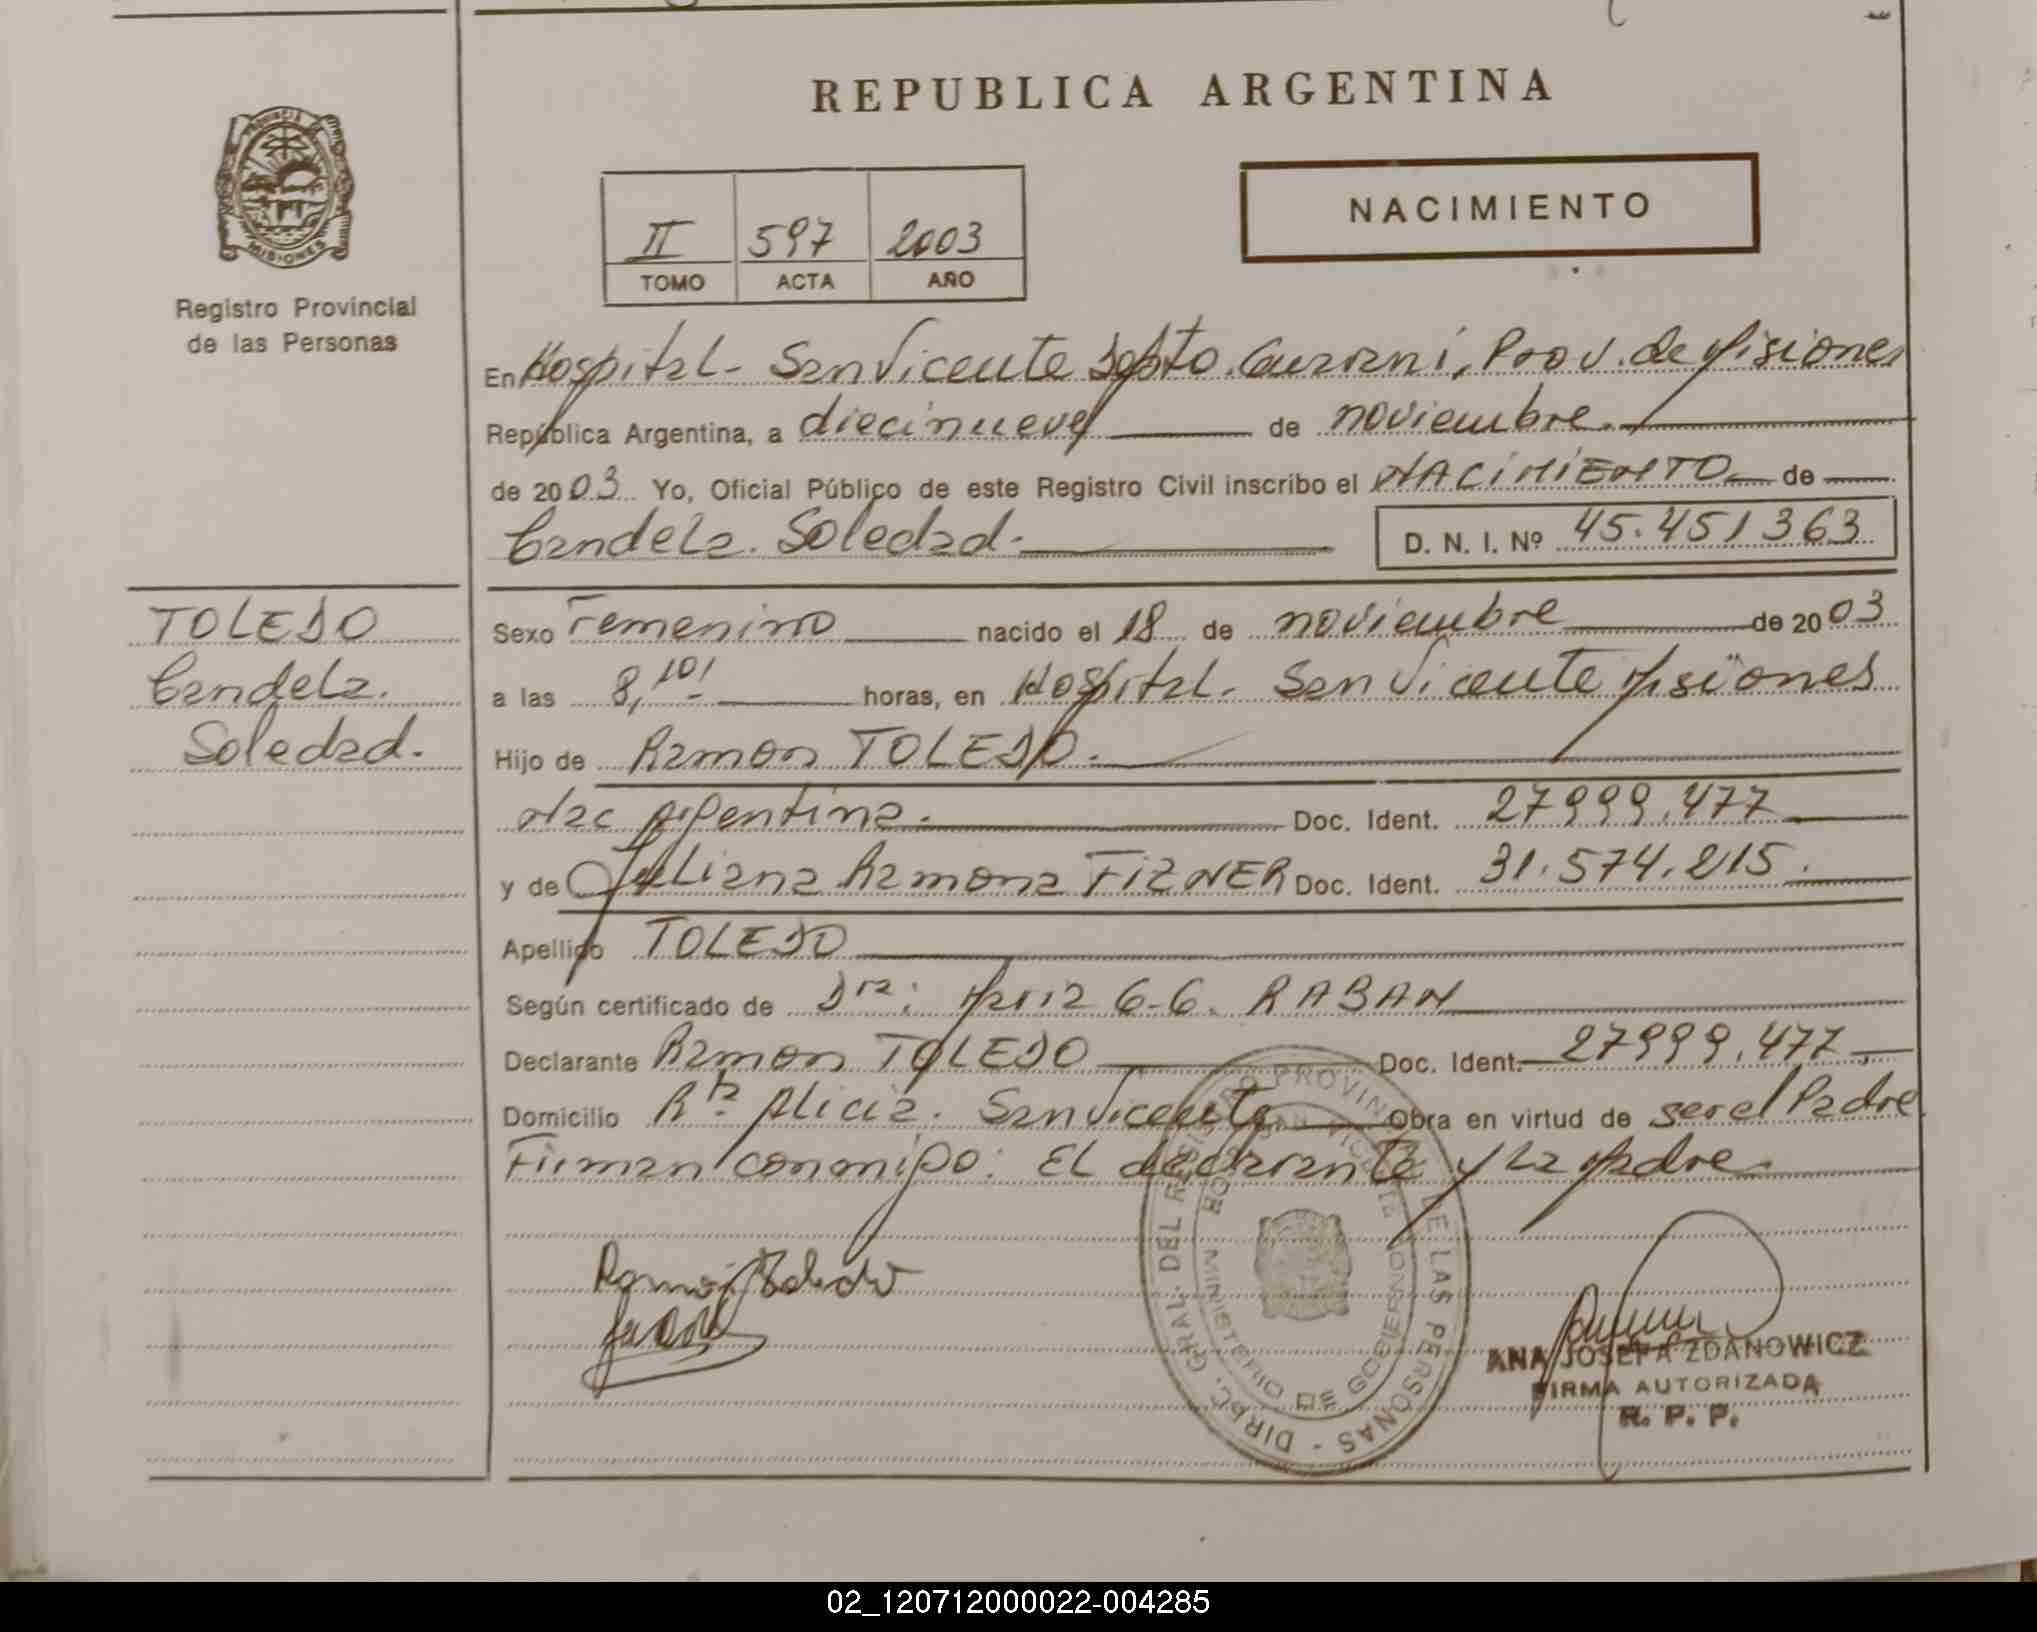 REPUBLICA ARGENTINA
PROVINCIA DE
MISIONES
Registro Provincial
de las Personas
II 597 2003
TOMO ACTA AÑO
NACIMIENTO
En Hospital- San Vicente Dpto. Guarani, Prov. de Misiones
República Argentina, a diecinueve de noviembre.
de 2003 Yo, Oficial Público de este Registro Civil inscribo el NACIMIENTO de
Candela. Soledad.
D. N. I. Nº 45.451363
TOLEDO
Candela.
Soledad.
Sexo Femenino nacido el 18 de noviembre de 2003
a las 8,10' horas, en Hospital- San Vicente Misiones
Hijo de Ramon TOLEDO.
Nac Argentina. Doc. Ident. 27999.477
y de Juliana Ramona FIZNER Doc. Ident. 31.574.215.
Apellido TOLEDO
Según certificado de Dra: Maria G.G. RABAN
Declarante Ramon TOLEDO Doc. Ident. 27999.477
Domicilio Rta Alicia. San Vicente Obra en virtud de ser el Padre
Firman conmigo: El declarante y La Madre
Ramon Toledo
DIREC. GRAL. DEL REGISTRO PROVINCIAL DE LAS PERSONAS
MINISTERIO DE GOBIERNO
ANA JOSEFA ZDANOWICZ
FIRMA AUTORIZADA
R. P. P.
02_120712000022-004285